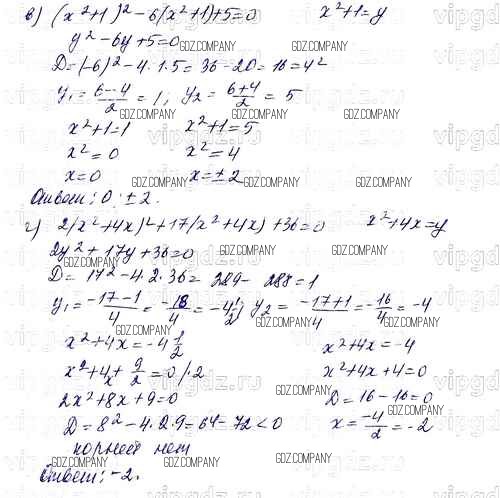 в) (x²+1)² - 6(x²+1)+5=0    x²+1=y
y² - 6y+5=0
D=(-6)² - 4·1·5=36-20=16=4²
y₁ = (6-4)/2 = 1; y₂ = (6+4)/2 = 5
x²+1=1    x²+1=5
x²=0    x²=4
x=0    x=±2
Ответ: 0; ±2.
г) 2(x²+4x)²+17(x²+4x)+36=0    x²+4x=y
2y²+17y+36=0
D= 17² - 4·2·36= 289 - 288=1
y₁ = (-17-1)/4 = -18/4 = -4 1/2; y₂ = (-17+1)/4 = -16/4 = -4
x²+4x=-4 1/2    x²+4x=-4
x²+4x+9/2=0 /·2    x²+4x+4=0
2x²+8x+9=0    D=16-16=0
D=8²-4·2·9=64-72<0    x = -4/2 = -2
корней нет
Ответ: -2.
GDZ.COMPANY
vipgdz.ru